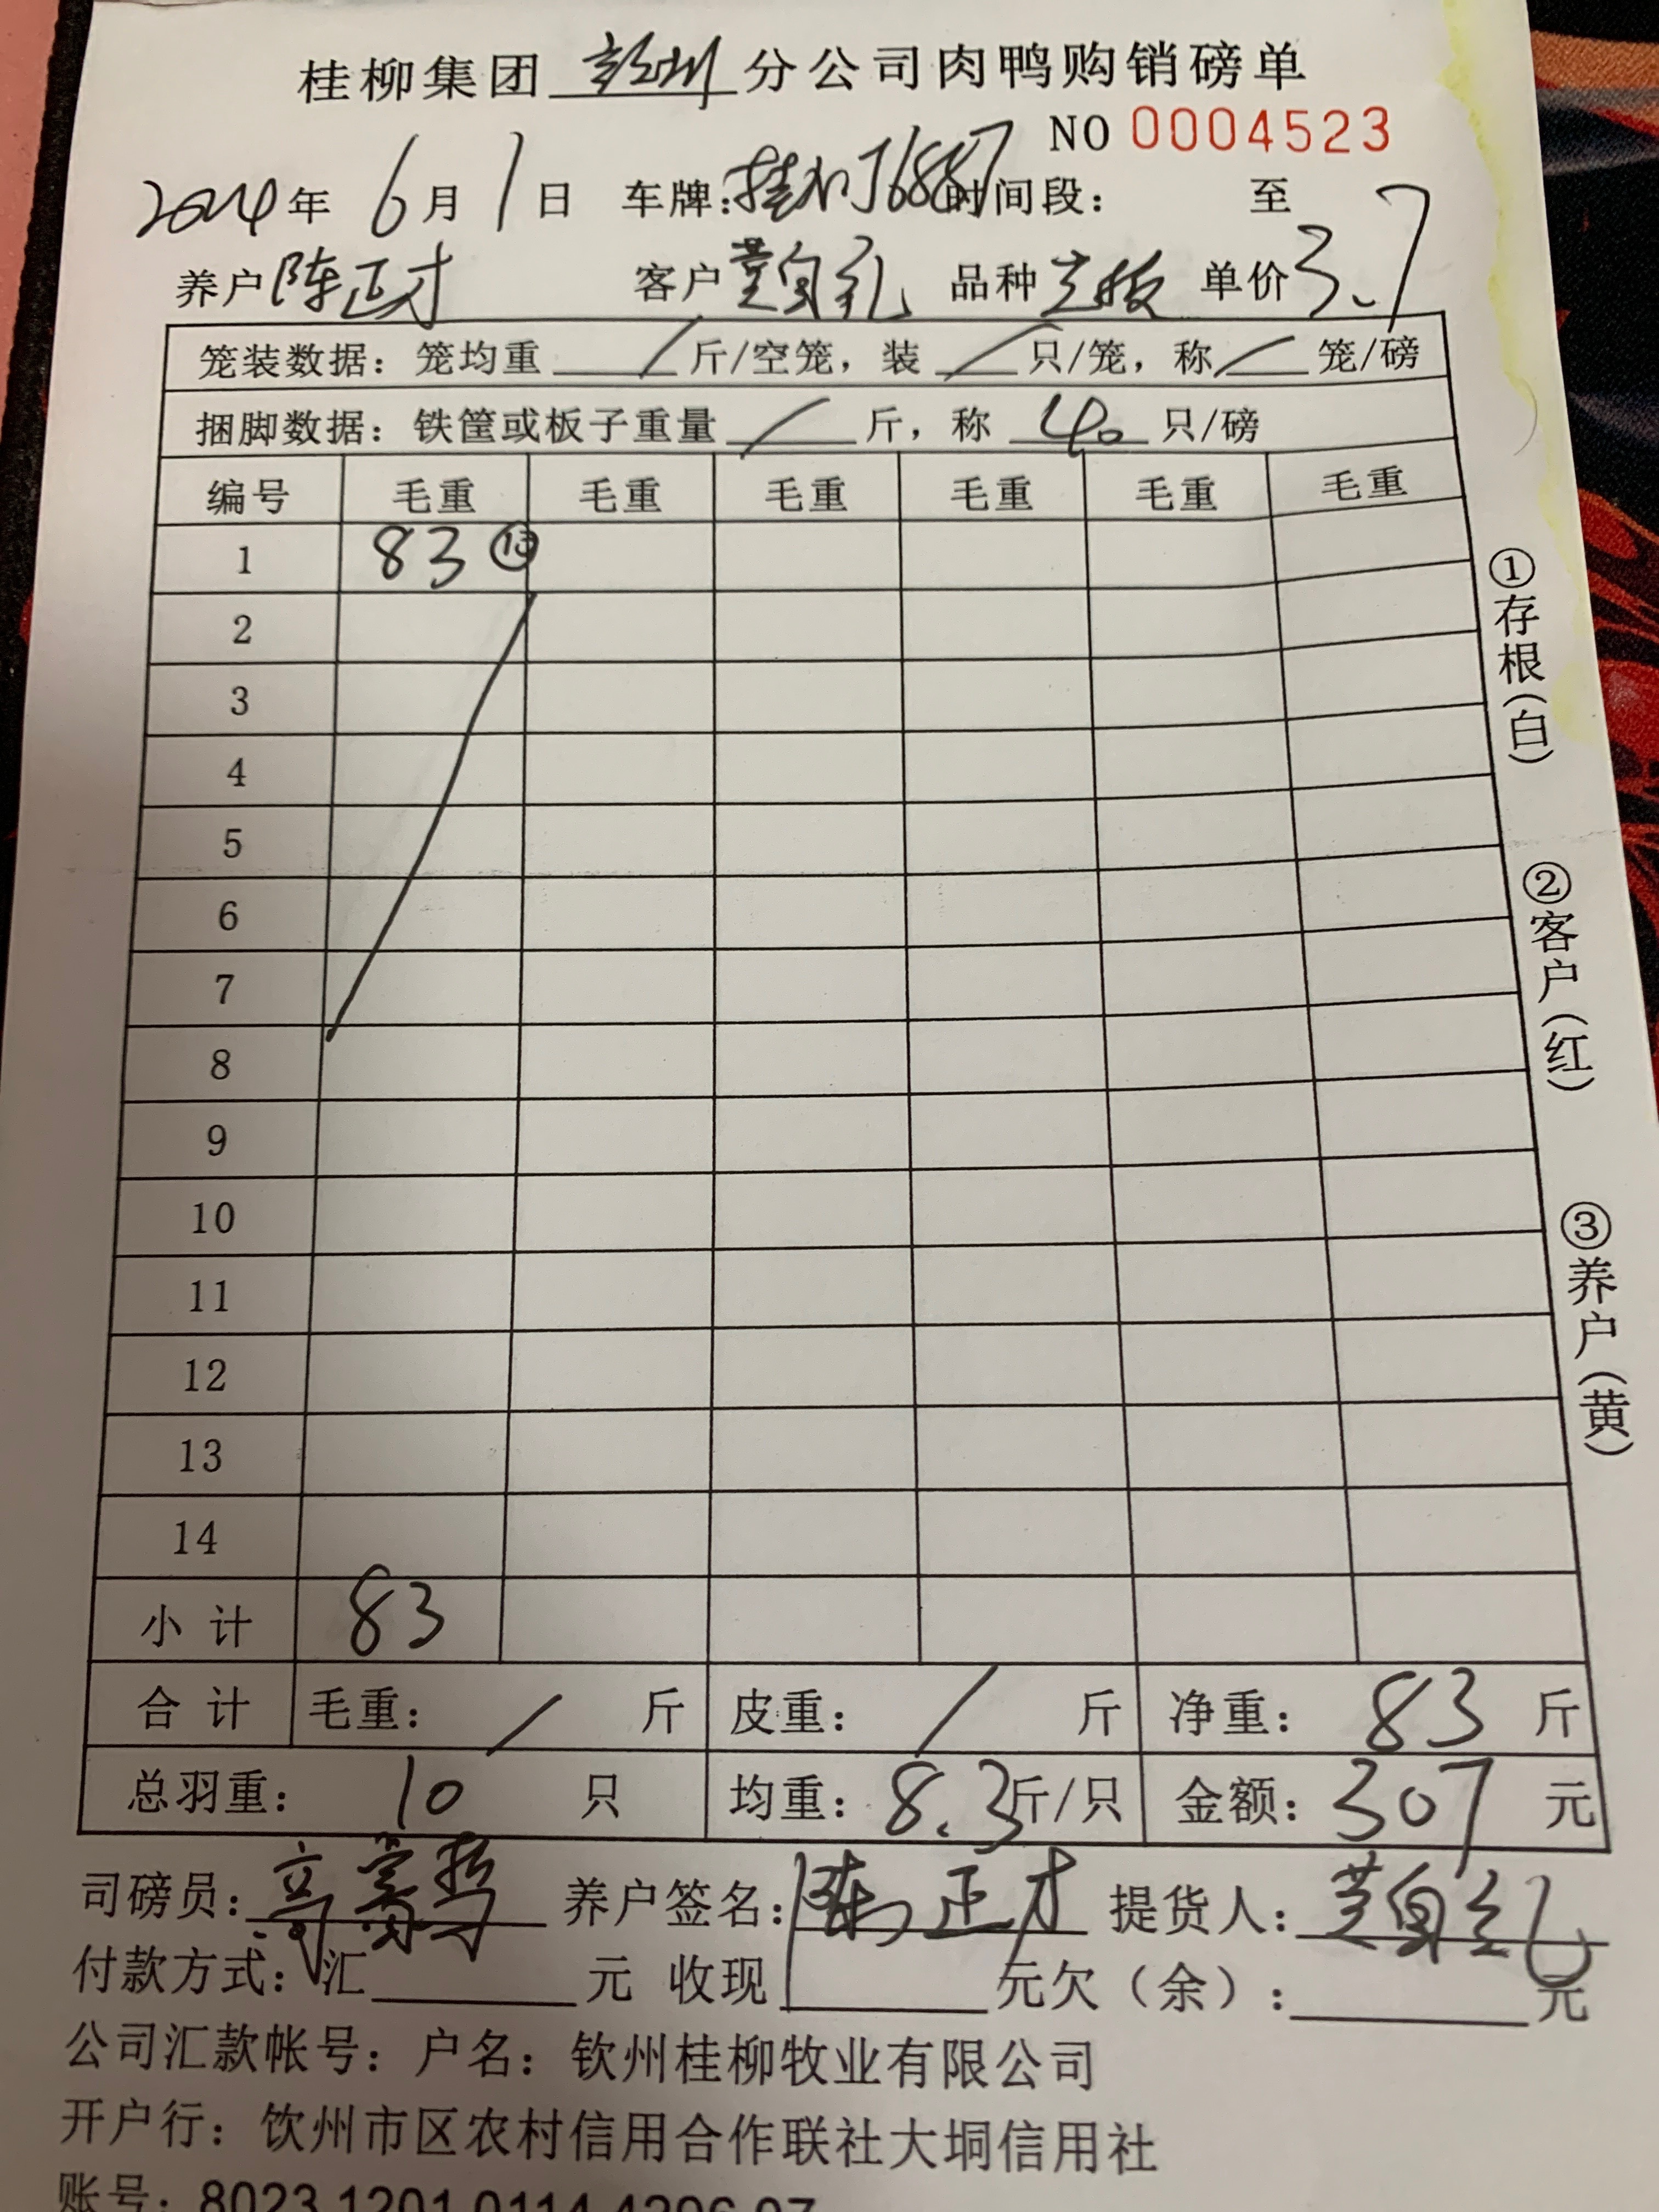 桂柳集团 分公司肉鸭购销磅单
NO 0004523
2024年 6月 1日 车牌: 时间段: 至
养户 陈正才 客户 黄自礼 品种 单价 3.7
笼装数据: 笼均重 / 斤/空笼, 装 / 只/笼, 称 / 笼/磅
捆脚数据: 铁筐或板子重量 / 斤, 称 40 只/磅
编号 毛重 毛重 毛重 毛重 毛重 毛重
1 83 ⑩
2
3
4
5
6
7
8
9
10
11
12
13
14
小计 83
合计 毛重: / 斤 皮重: / 斤 净重: 83 斤
总羽重: 10 只 均重: 8.3 斤/只 金额: 307 元
司磅员: 养户签名: 陈正才 提货人: 黄自礼
付款方式: 汇 元 收现 元欠(余): 元
公司汇款帐号: 户名: 钦州桂柳牧业有限公司
开户行: 钦州市区农村信用合作联社大垌信用社
账号: 8023 1201 0114 4206 07
①存根(白)
②客户(红)
③养户(黄)